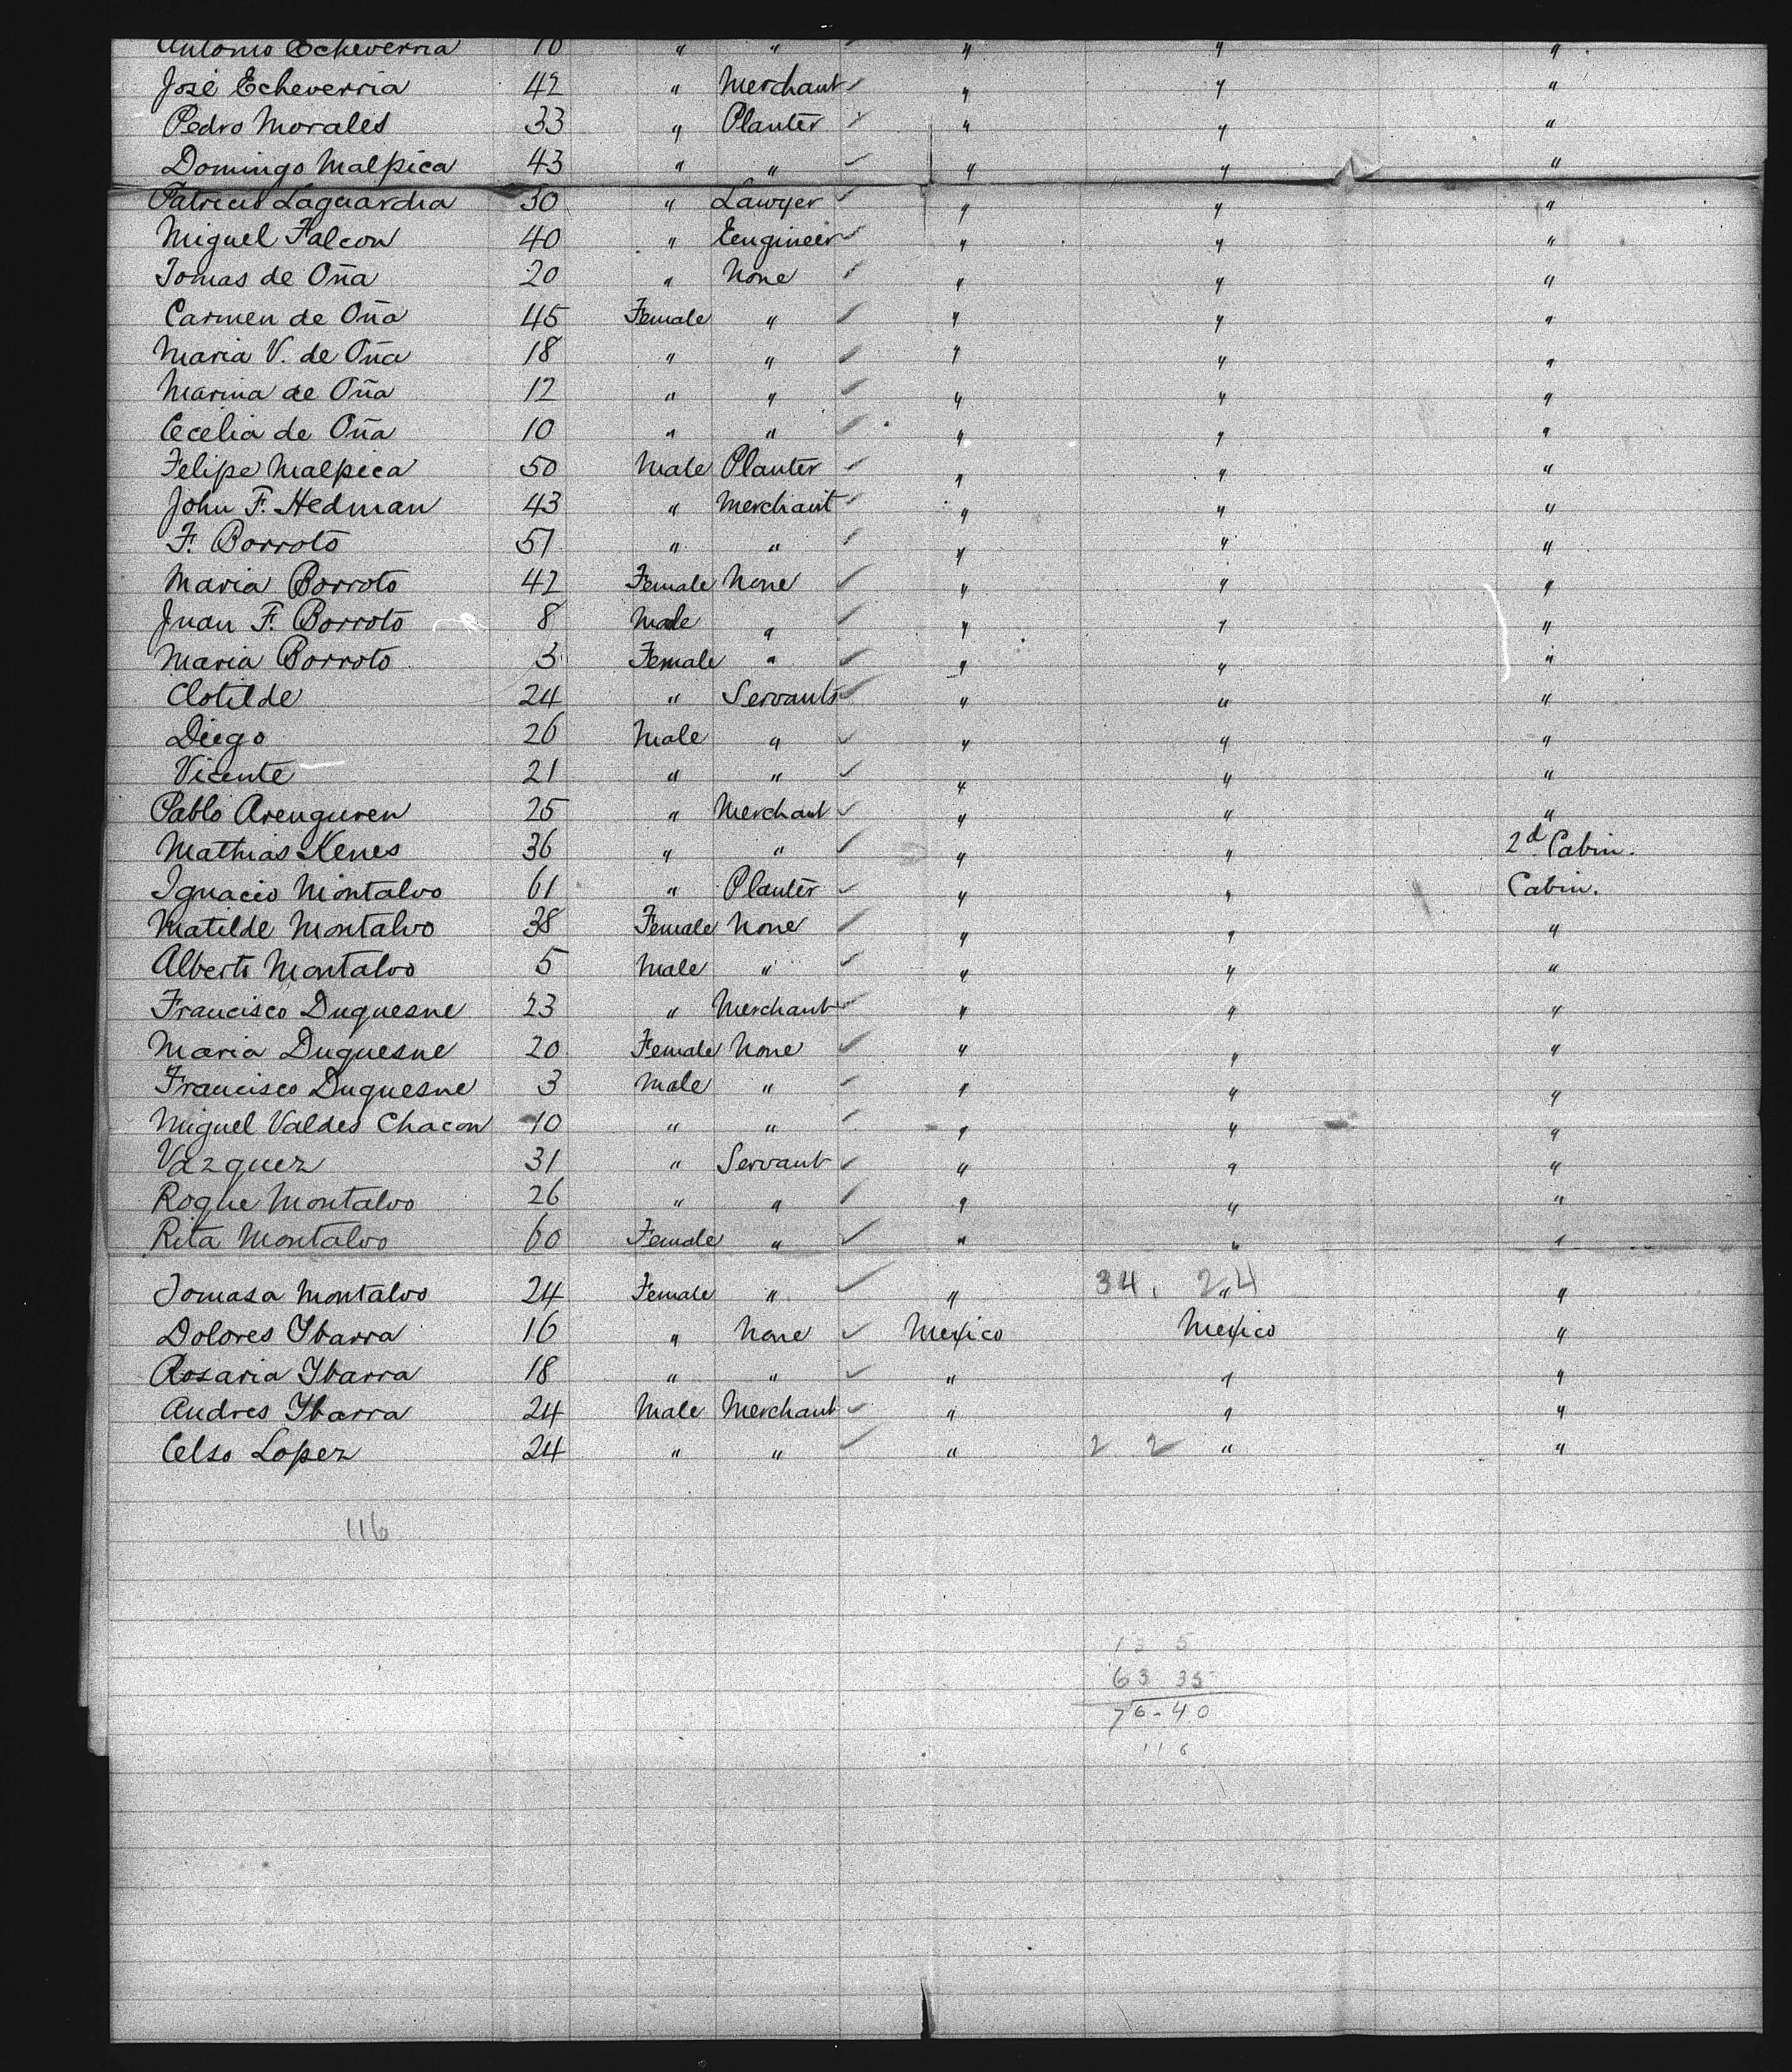 Antonio Echeverria 10 " " " " "
José Echeverria 42 " Merchant " " "
Pedro Morales 33 " Planter " " "
Domingo Malpica 43 " " " " "
Laguardia 50 " Lawyer " " "
Miguel Falcon 40 " Eengineer " " "
Tomas de Oña 20 " None " " "
Carmen de Oña 45 Female " " " "
Maria V. de Oña 18 " " " " "
Marina de Oña 12 " " " " "
Cecelia de Oña 10 " " " " "
Felipe Malpica 50 Male Planter " " "
John F. Hedman 43 " Merchant " " "
F. Borroto 51 " " " " "
Maria Borroto 42 Female None " " "
Juan F. Borroto 8 Male " " " "
Maria Borroto 3 Female " " " "
Clotilde 24 " Servants " " "
Diego 26 Male " " " "
Vicente 21 " " " " "
Pablo Arenguren 25 " Merchant " " "
Mathias Kenes 36 " " " " 2d Cabin.
Ignacio Montalvo 61 " Planter " " Cabin.
Matilde Montalvo 38 Female None " " "
Alberto Montalvo 5 Male " " " "
Francisco Duquesne 23 " Merchant " " "
Maria Duquesne 20 Female None " " "
Francisco Duquesne 3 Male " " " "
Miguel Valdes Chacon 10 " " " " "
Vazquez 31 " Servant " " "
Roque Montalvo 26 " " " " "
Rita Montalvo 60 Female " " " "
Tomasa Montalvo 24 Female " " 34. 24 " "
Dolores Ybarra 16 " None Mexico Mexico "
Rosaria Ybarra 18 " " " " "
Andres Ybarra 24 Male Merchant " " "
Celso Lopez 24 " " " 2 2 " "
116
13 5
63 35
76-40
116